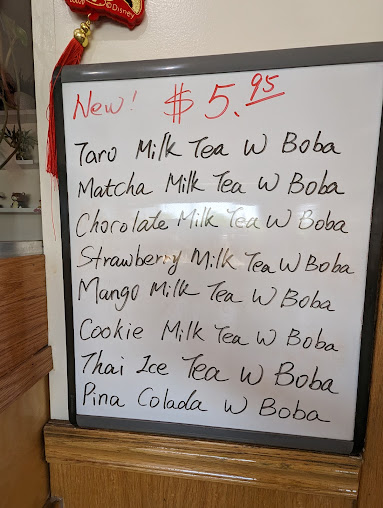 ©Disney
New! $5.95
Taro Milk Tea W Boba
Matcha Milk Tea W Boba
Chorolate Milk Tea W Boba
Strawberry Milk Tea W Boba
Mango Milk Tea W Boba
Cookie Milk Tea W Boba
Thai Ice Tea W Boba
Pina Colada W Boba